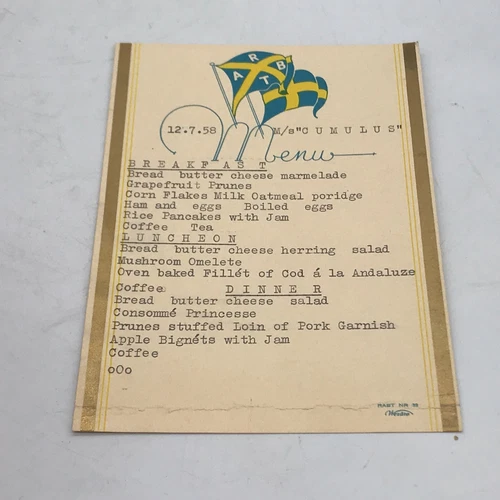 A R B T
12.7.58 M/s"CUMULUS"
Menu
BREAKFAST
Bread butter cheese marmelade
Grapefruit Prunes
Corn Flakes Milk Oatmeal poridge
Ham and eggs Boiled eggs
Rice Pancakes with Jam
Coffee Tea
LUNCHEON
Bread butter cheese herring salad
Mushroom Omelete
Oven baked Fillét of Cod á la Andaluze
Coffee DINNER
Bread butter cheese salad
Consommé Princesse
Prunes stuffed Loin of Pork Garnish
Apple Bignéts with Jam
Coffee
oOo